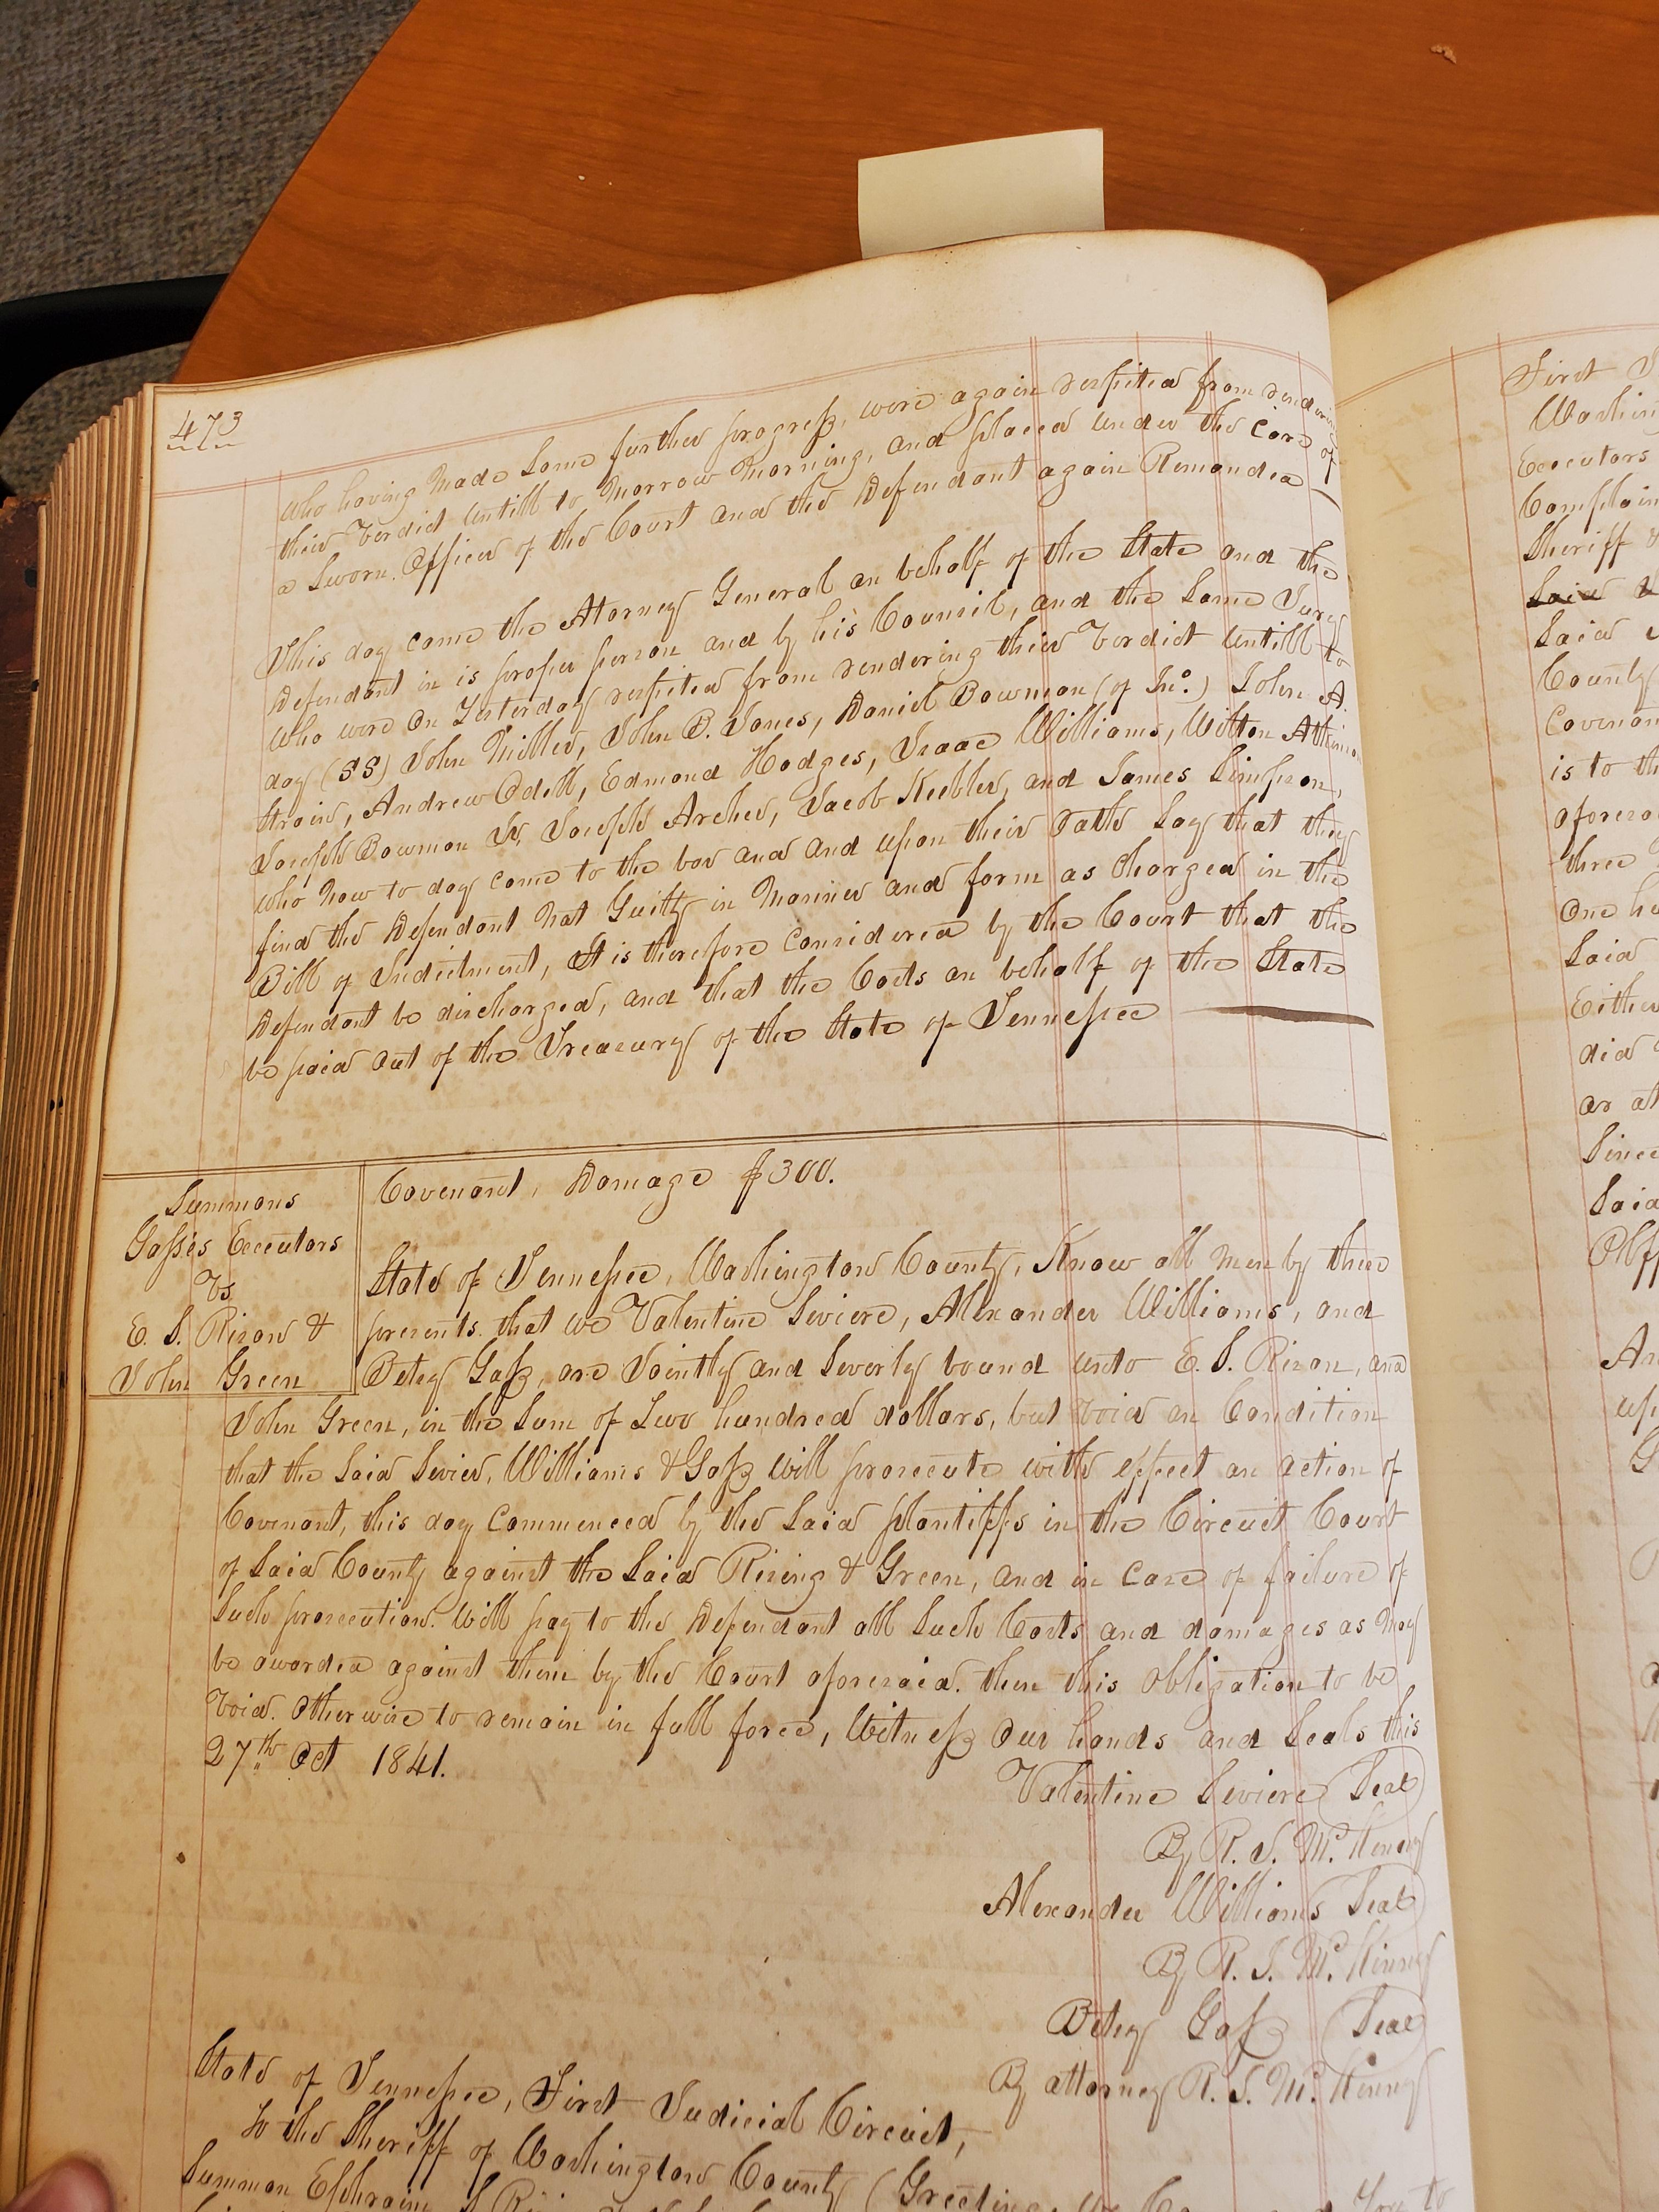 473
who having made Some further progress, were again respited from rendering
their Verdict untill to Morrow Morning, and placed under the Care of
a Sworn Officer of the Court and the Defendant again Remanded
This day came the Atorney General on behalf of the State and the
Defendant in is proper person and by his Council, and the Same Jury
Who were on Yesterday respited from rendering their Verdict untill to
day (SS) John Miller, John B. Jones, Daniel Bowman (of Jno.) John A.
Strain, Andrew Odell, Edmond Hodges, Isaac Williams, Wilton Atkinson
Joseph Bowman Sr, Joseph Archer, Jacob Keebler, and James Simpson,
who now to day came to the bar and and upon their Oath Say that they
find the Defendant Not Guilty in Manner and form as Charged in the
Bill of Indictment, It is therefore Considered by the Court that the
Defendant be discharged, and that the Costs on behalf of the State
be paid out of the Treasury of the State of Tennessee
Summons
Gass's Executors
Vs
E. S. Rison &
John Green
Covenant, Damage $300.
State of Tennessee, Washington County, Know all Men by these
presents that we Valentine Seviere, Alexander Williams, and
Betsy Gass, are Jointly and Severly bound unto E. S. Rison, and
John Green, in the Sum of Two hundred dollars, but Void on Condition
that the Said Sevier, Williams & Gass will prosecute with effect an action of
Covenant, this day Commenced by the Said plantiffs in the Circuit Court
of Said County against the Said Rising & Green, and in Case of failure of
Such prosecution. Will pay to the Defendant all Such Costs and damages as May
be awarded against them by the Court aforesaid. then this Obligation to be
Void. Otherwise to remain in full force, Witness Our hands and Seals this
27th Oct 1841.
Valentine Seviere Seal
By R. J. Mc. Kinney
Alexander Williams Seal
By R. J. Mc. Kinney
Betsy Gass Seal
By attorney R. J. Mc. Kinney
State of Tennessee, First Judicial Circuit,
To the Sheriff of Washington County Greeting,
Summon Ephraim
First
Executors
Sheriff
Said
Said
County
is to
three
Said
Either
did
or at
Since
Said